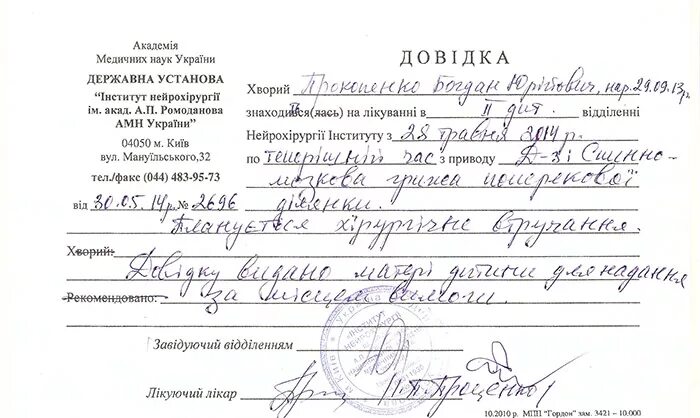 Академія
Медичних наук України
ДЕРЖАВНА УСТАНОВА
“Інститут нейрохірургії
ім. акад. А.П. Ромоданова
АМН України”
04050 м. Київ
вул. Мануїльського,32
тел./факс (044) 483-95-73
від 30.05.14р. № 2696
ДОВІДКА
Хворий Прокопенко Богдан Юрійович, нар. 29.09.13р.
знаходився(лась) на лікуванні в ІІ дит. відділенні
Нейрохірургії Інституту з 28 травня 2014 р.
по теперішній час з приводу Д-з: Спинно-
мозкова грижа поперекової
ділянки.
Планується хірургічне втручання.
Хворий:
Довідку видано матері дитини для надання
Рекомендовано: за місцем вимоги.
Завідуючий відділенням
Лікуючий лікар П.П. Проценко
10.2010 р. МПП “Гордон” зам. 3421 – 10.000